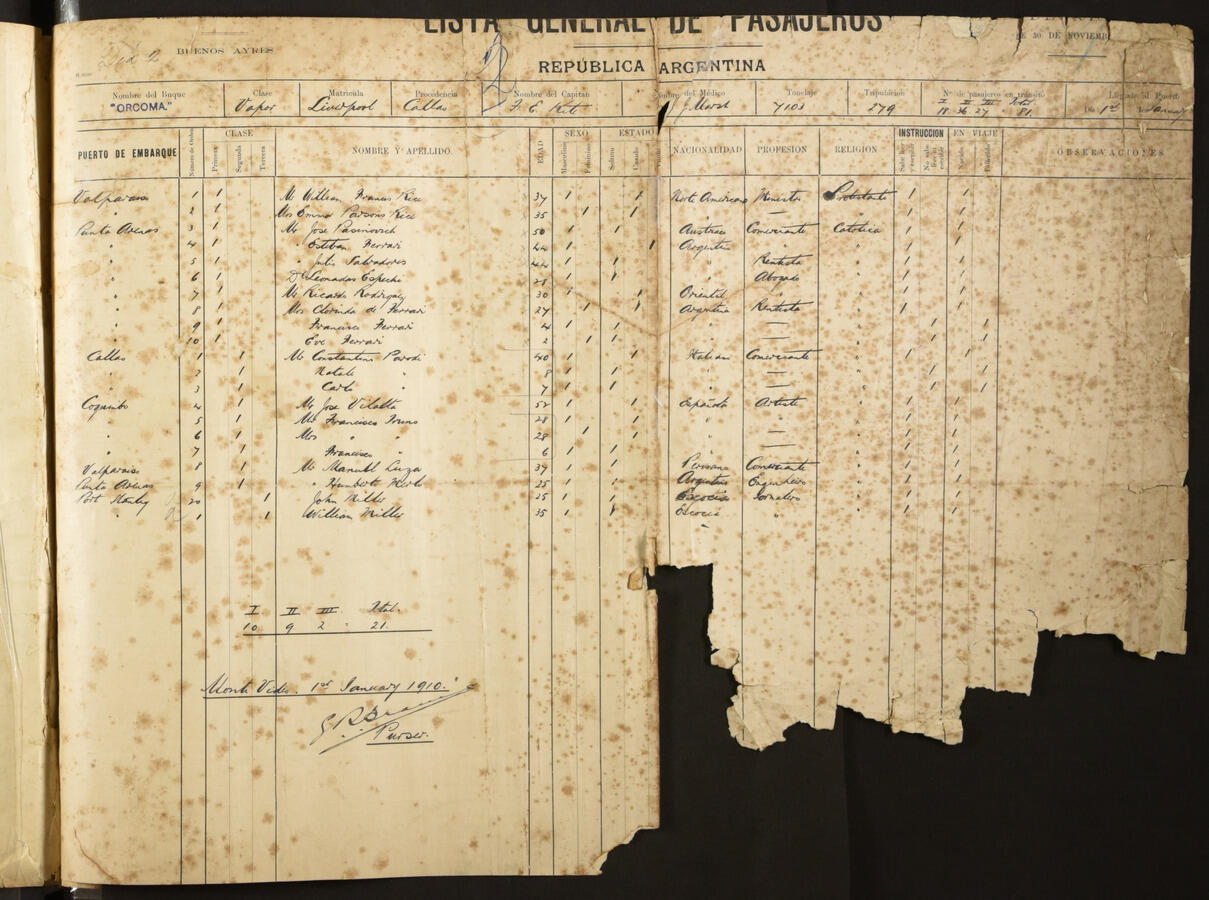 LISTA GENERAL DE PASAJEROS
DE 30 DE NOVIEMB
BUENOS AYRES
REPÚBLICA ARGENTINA
Nombre del Buque Clase Matrícula Procedencia Nombre del Capitan del Médico Tonelaje Tripulación Nº de pasajeros en tránsito Llegada al Puerto
I II III Total
"ORCOMA." Vapor Liverpool Callao J. Marsh 7103 279 18 36 27 81. 1st January
PUERTO DE EMBARQUE Número de Orden CLASE Primera Segunda Tercera NOMBRE Y APELLIDO EDAD SEXO Masculino Femenino ESTADO Soltero Casado NACIONALIDAD PROFESION RELIGION INSTRUCCION EN VIAJE OBSERVACIONES
Valparaiso 1 1 Mr William Francis Rice 34 1 1 Norte Americano Ministro Protestante 1 1
" 2 1 Mrs Emma Parsons Rice 35 1 1 " — " 1 1
Punta Arenas 3 1 Mr Jose Pasinovich 50 1 1 Austriaco Comerciante Catolica 1 1
" 4 1 " Esteban Ferrari 44 1 1 Argentin " " 1 1
" 5 1 " Julio Salvadores 44 1 1 " Rentista " 1 1
" 6 1 Dr Leonadas Espechi 28 1 1 " Abogado " 1 1
" 7 1 Mr Ricardo Rodriguez 30 1 1 Oriental " " 1 1
" 8 1 Mrs Clorinda de Ferrari 27 1 1 Argentina Rentista " 1 1
" 9 1 Francisco Ferrari 4 1 1 " — " 1 1
" 10 1 Eve Ferrari 2 1 1 " — " 1 1
Callao 1 1 Mr Constantino Parodi 40 1 1 Italian Comerciante " 1 1
" 2 1 Natale " 8 1 1 " — " 1 1
" 3 1 Carlo " 7 1 1 " — " 1 1
Coquimbo 4 1 Mr Jose Vilalta 52 1 1 Española Artiste " 1 1
" 5 1 Mr Francisco 28 1 1 " " 1 1
" 6 1 Mrs " " 28 1 1 " — " 1 1
" 7 1 Francisco " 6 1 1 " — " 1 1
Valparaiso 8 1 Mr Manuel Luza 39 1 1 Peruano Comerciante " 1 1
Punta Arenas 9 1 " Humberto 25 1 1 Argentino Engenhero " 1 1
Port Stanley 20 1 John Miller 25 1 1 Escocia Jornalero " 1 1
" 1 1 William Miller 35 1 1 Escocia " " 1 1
I II III Total.
10 9 2 21.
Monte Video. 1st January 1910.
Purser.